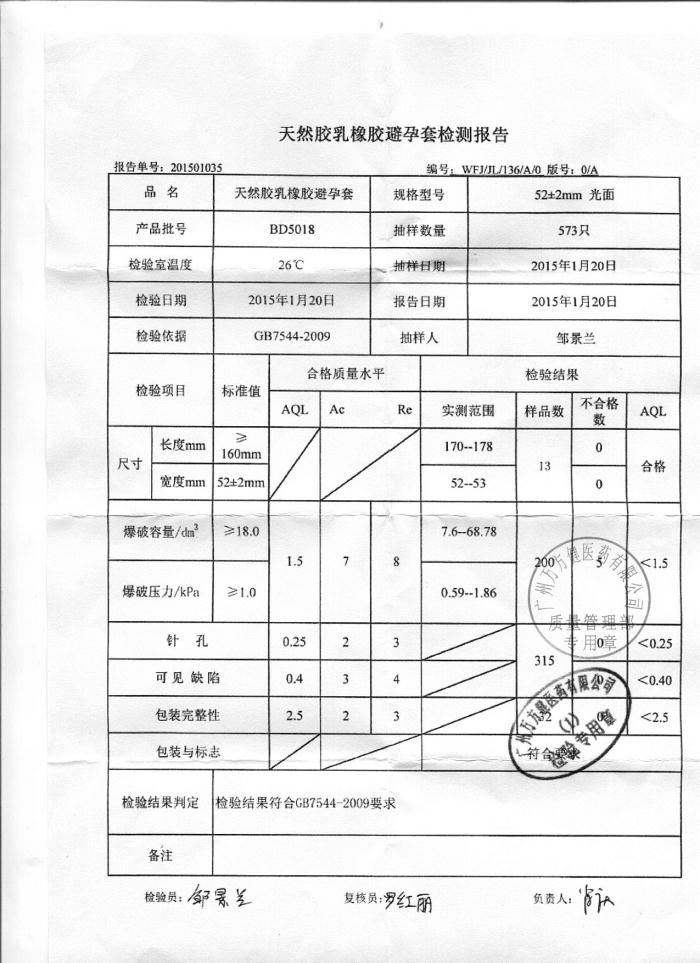 天然胶乳橡胶避孕套检测报告
报告单号：201501035 编号：WFJ/JL/136/A/0 版号：0/A
品 名 天然胶乳橡胶避孕套 规格型号 52±2mm 光面
产品批号 BD5018 抽样数量 573只
检验室温度 26℃ 抽样日期 2015年1月20日
检验日期 2015年1月20日 报告日期 2015年1月20日
检验依据 GB7544-2009 抽样人 邹景兰
检验项目 标准值 合格质量水平 检验结果
AQL Ac Re 实测范围 样品数 不合格数 AQL
尺寸 长度mm ≥160mm 170--178 13 0 合格
宽度mm 52±2mm 52--53 0
爆破容量/dm³ ≥18.0 1.5 7 8 7.6--68.78 200 5 <1.5
爆破压力/kPa ≥1.0 0.59--1.86
针 孔 0.25 2 3 315 0 <0.25
可见缺陷 0.4 3 4 0 <0.40
包装完整性 2.5 2 3 32 0 <2.5
包装与标志 符合要求
检验结果判定 检验结果符合GB7544-2009要求
备注
检验员：邹景兰 复核员：罗红丽 负责人：
广州万方健医药有限公司
质量管理部
专用章
广州万方健医药有限公司
(1)
检验专用章